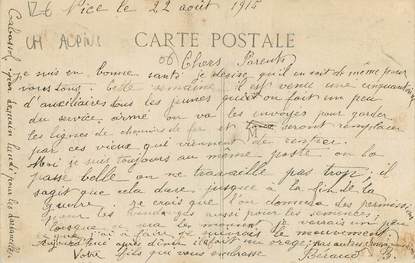 126 Nice le 22 août 1915
CH ALPINS
CARTE POSTALE
Chers Parents
je suis en bonne santé je désire qu'il en soit de même pour
vous tous. Cette semaine il est venu une cinquantaine
d'auxiliaires tous les jeunes qui ont fait un peu
du service armé on va les envoyer pour garder
les lignes de chemins de fer et seront remplacer
par ces vieux qui viennent de rentrer.
Moi je suis toujours au même poste on la
passe belle on ne travaille pas trop; il
sagit que cela dure jusque à la fin de la
guerre. je crais que l'on donnera des permissions
pour les aussi pour les semences
lorsque ce sera les je verrais un peu
que j'ai à faire je suivrais le mouvement.
Aujourd'hui après dîner il a fait un orage; pas autre
Votre fils qui vous embrasse
Cabassol demain lundi pour les